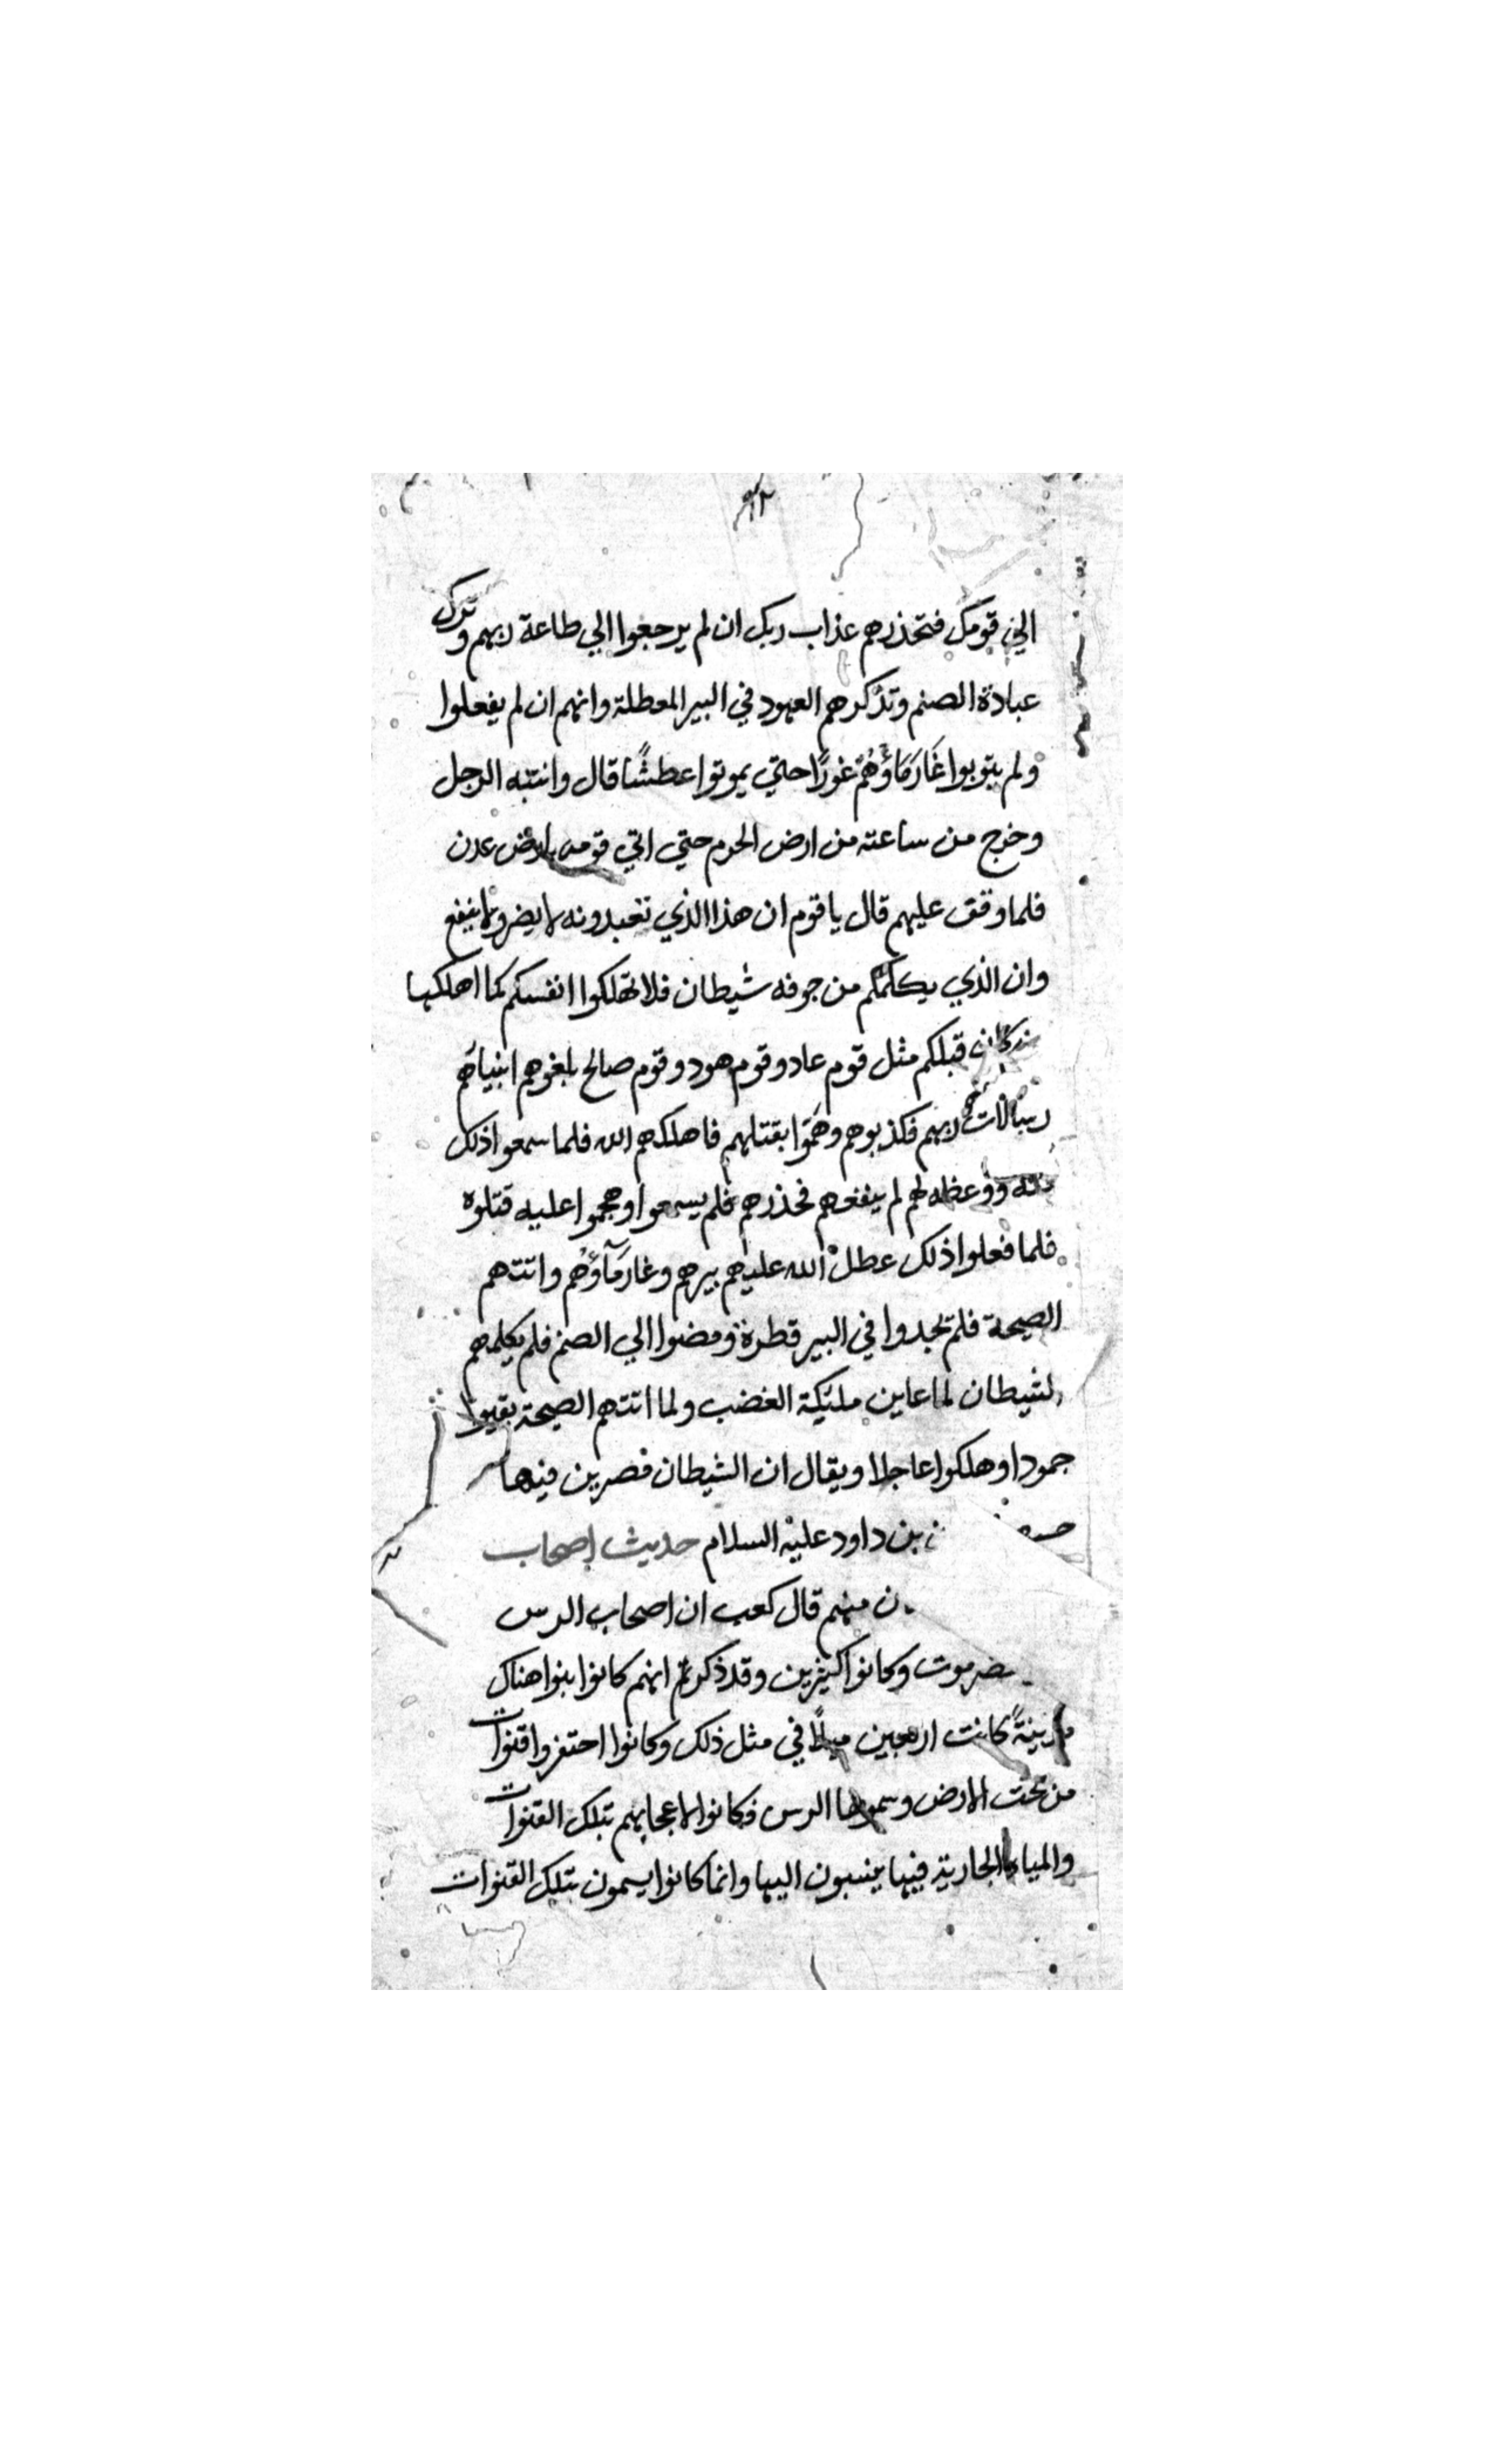 الي قومك فتحذرهم عذاب ربك ان لم يرجعوا الي طاعة ربهم وترك
عبادة الصنم وتذكرهم العهود في البير المعطلة وانهم ان لم يفعلوا
ولم يتوبوا غَارَ مَاؤُهُمْ غورًا حتي يموتوا عطشًا قال وانتبه الرجل
وخرج من ساعته من ارض الحرم حتي اتي قومه بارض عدن
فلما وقف عليهم قال يا قوم ان هذا الذي تعبدونه لا يضر ولا ينفع
وان الذي يكلمكم من جوفه شيطان فلا تهلكوا انفسكم كما اهلكها
قبلكم مثل قوم عاد وقوم هود وقوم صالح بلغوهم انبياهم
رسالات ربهم فكذبوهم وهمَّوا بقتلهم فاهلكهم الله فلما سمعوا ذلك
ووعظه لهم لم ينفعهم فحذرهم فلم يسمعوا وهجموا عليه قتلوه
فلما فعلوا ذلك عطل الله عليهم بيرهم وغار مَآؤُهُم واتتهم
الصيحة فلم يجدوا في البير قطرة ومضوا الي الصنم فلم يكلمهم
لشيطان لما عاين مليكة الغضب ولما اتتهم الصيحة بقيوا
جمودا وهلكوا عاجلا ويقال ان الشيطان فصرين فيها
بن داود عليه السلام حديث اصحاب
منهم قال كعب ان اصحاب الرس
وكانوا كثيرين وقد ذكر ثم انهم كانوا بنوا هناك
كانت اربعين ميلاً في مثل ذلك وكانوا احتفروا قنوات
من تحت الارض وسموها الرس فكانوا لاعجابهم بتلك القنوات
والمياه الجارية فيها ينسبون اليها وانما كانوا يسمون بتلك القنوات